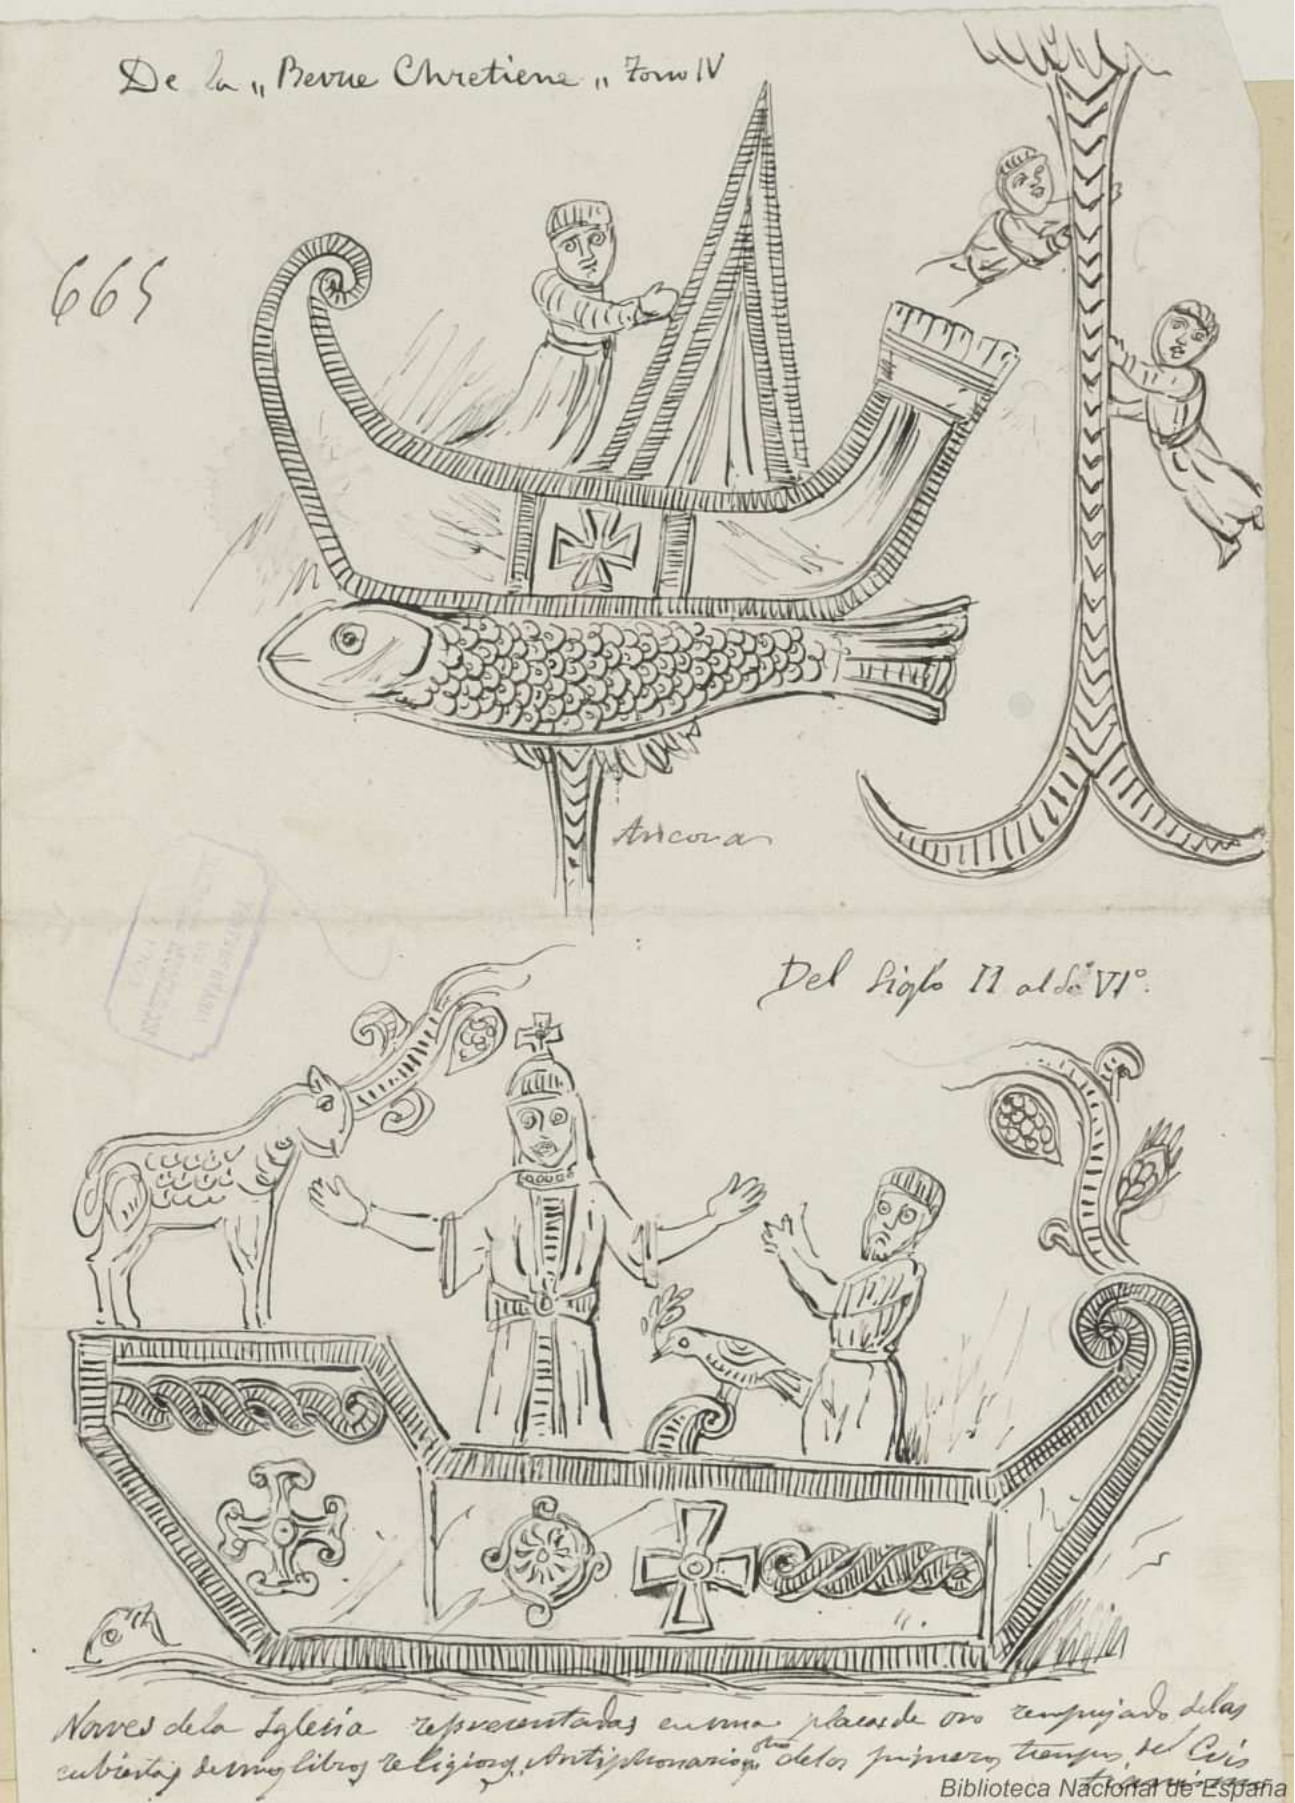 De la „Revue Chretiene„ Tomo IV
665
Ancora
Del Siglo II al VIº.
Naves de la Iglesia representadas en una placas de oro repujado de las
cubiertas de unos libros religiosos, Antiphonarios de los primeros tiempos del Cris
tianismo
Biblioteca Nacional de España